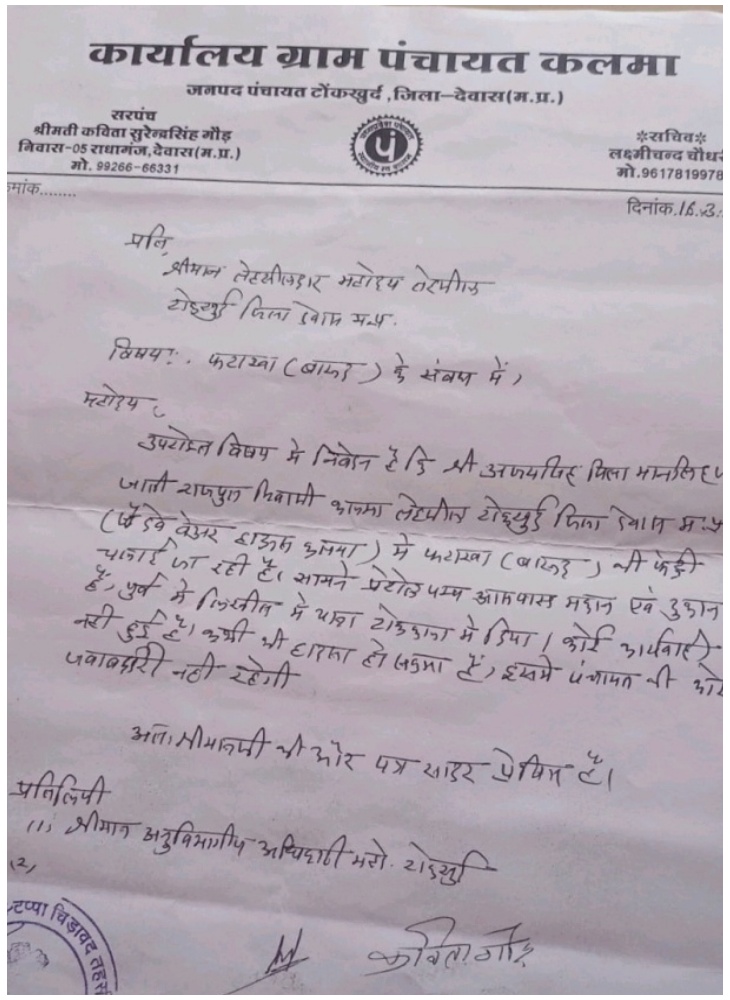 कार्यालय ग्राम पंचायत कलमा
जनपद पंचायत टोंकखुर्द ,जिला–देवास(म.प्र.)
सरपंच
श्रीमती कविता सुरेन्द्रसिंह गौड़
निवास-05 राधागंज,देवास(म.प्र.)
मो. 99266-66331
पं
*सचिव*
लक्ष्मीचन्द चौधर
मो.9617819978
मांक........
दिनांक.16.3.
प्रति,
श्रीमान तेहसीलदार महोदय तेहसील
टोंकखुर्द जिला देवास म.प्र.
विषय:. फटाखा (बारूद) के संबध में,
महोदय,
उपरोक्त विषय मे निवेदन है कि श्री अजयसिंह पिता मानसिंह
जाती राजपुत निवासी कलमा तेहसील टोंकखुर्द जिला देवास म.प्र
वेअर हाऊस कलमा) में फटाखा (बारूद) की फेक्ट्री
चलाई जा रही है। सामने पेट्रोल पम्प आसपास मकान एवं दुकान
है, पुर्व मे लिखीत में थाना टोंककला मे दिया। कोई कार्यवाही
नही हुई है। कभी भी हादसा हो सकता है, इसमे पंचायत की कोई
जवाबदारी नही रहेगी
अतः श्रीमानजी की ओर पत्र सादर प्रेषित है।
प्रतिलिपी
(1) श्रीमान अनुविभागीय अधिकारी महो. टोंकखुर्द
(2)
टप्पा चिड़ावद तहसी
कविता गौड़